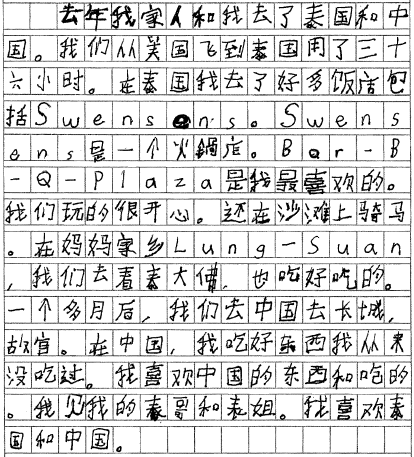 去年我家人和我去了泰国和中
国。我们从美国飞到泰国用了三十
六小时。在泰国我去了好多饭店包
括Swensens。Swens
ens是一个火鍋店。Bar-B
-Q-Plaza是我最喜欢的。
我们玩的很开心。还在沙滩上骑马
。在妈妈家乡Lung-Suan
,我们去看泰大佛,也吃好吃的。
一个多月后,我们去中国去长城,
故宫。在中国,我吃好东西我从来
没吃过。我喜欢中国的东西和吃的
。我见我的表哥和表姐。我喜欢泰
国和中国。